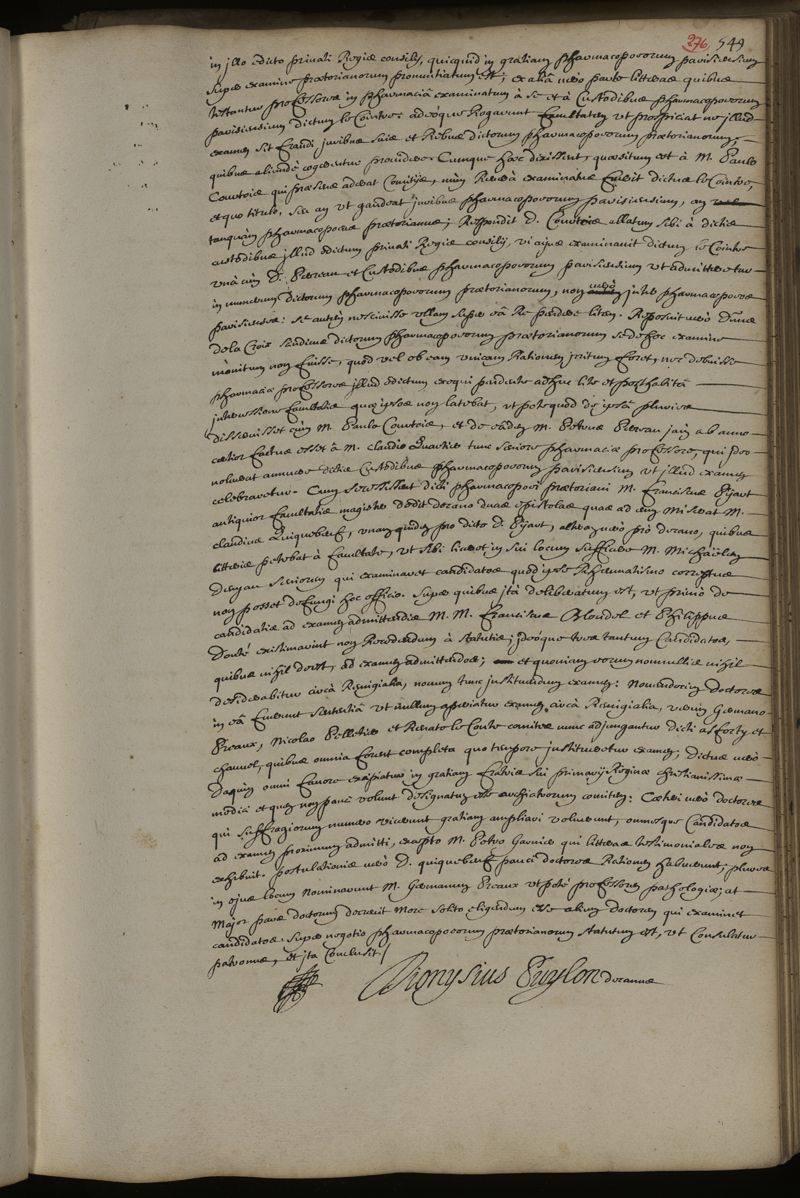 276 549
in illo edicto privati Regiæ consilij, quicquid in gratiam pharmacopoeorum parisiensium
super examine prætorianorum pronuntiatum est; ex aliâ verò parte litteræ quibus
testantur professores in pharmaciâ examinatum à se et à Custodibus pharmacopoeorum
parisiensium dictum le Cointre: adeoque Rogaverunt facultatem ut prospiciat ne illud
examen sit fraudi juribus suis et Rebus dictorum pharmacopoeorum prætorianorum,
quibus aliundè cogerentur providere. Cumque hæc dixissent, quæsitum est à M. Paulo
Courtois qui præsens aderat Comitijs, num Reverà examinatus fuerit dictus le Cointre,
et quo titulo, seu an ut gaudeat juribus pharmacopoeorum parisiensium, an
tanquàm pharmacopoeus prætorianus; Respondit D. Courtois allatum sibi à dictis
custodibus illud edictum privati Regiæ consilij, vi cujus examinavit dictum le Cointre
unà cum D. Perreau et Custodibus pharmacopoeorum parisiensium ut admitteretur
in numerum dictorum pharmacopoeorum prætorianorum, non verò inter pharmacopoeos
parisienses: se autem nescivisse ullam super eâ Re pendere litem. Reposuit verò Dnus
de la Croix sindicus dictorum pharmacopoeorum prætorianorum se de hoc examine
monitum non fuisse, quod vel ob eam unicam Rationem irritum foret, nec debuisse
pharmaciæ professores illud edictum exequi pendente adhuc lite et posthabitâ
intercessione facultatis quæ ipsos non latebat, ut pote quod de ipsâ pluries
disseruisset cum M. Paulo Courtois, et de eâdem M. Petrus Perreau jam ab anno
certior factus esset à M. Claudio Quartier tunc seniore pharmaciæ professore, qui ideo
noluerat annuere dictis Custodibus pharmacopoeorum parisiensium ut illud examen
celebraretur. Cum secessissent dicti pharmacopoei prætoriani M. Franciscus Pijart
antiquior facultatis magister dedit decano duas epistolas quas ad eum miserat M.
Claudius Quiquebeuf, unam quidem pro dicto D. Pijart, alteram verò pro decano, quibus
litteris petebat à facultate, ut sibi liceret in sui locum sufficere M. Michaëlem
Denyau seniorem qui examinaret candidatos quod ipse Rheumatismo correptus
non posset defungi hoc officio. Super quibus ità deliberatum est, ut primò de
candidatis ad examen admittendis M. M. Franciscus Blondel et Philippus
Douté existimarint non Recedendum à statutis; ideoque tres tantum Candidatos,
quibus nihil deest, ad examen admittendos; et quoniam eorum nonnullis nihil
desiderabitur circà Remigialia, novum tunc instituendum examen: Novendecim doctores
in eâ fuerunt sententiâ ut nullum aperiatur examen circà Remigialia, verùm Germano
Preaux, Nicolao Pelletier et Renato le Conte comites nunc adjungantur dicti Afforty et
Chauvel, quibus omnia forent completa quo tempore institueretur examen; Dictus verò
Daquin omni favore exciperetur in gratiam fratris sui primarij Reginæ christianissimæ
medici et quem non pauci volunt designatum esse archiatrorum comitem: Cæteri verò doctores
qui suffragiorum numero vicerunt gratiam ampliari voluerunt, omnesque Candidatos
ad examen proximum admitti, excepto M. Petro Garnier qui litteras testimoniales non
exhibuit. Postulationis verò D. Quiquebeuf pauci doctores Rationem habuerunt; plures
in ejus locum Nominarunt M. Germanum Preaux ut pote professorem pathologiæ; at
Major pars doctorum decrevit More solito eligendum esse alium doctorem qui examinet
candidatos. Super negotio pharmacopoeorum prætorianorum statutum est, ut Consulatur
patronus, et ità Conclusit /
Dionysius Puylon decanus